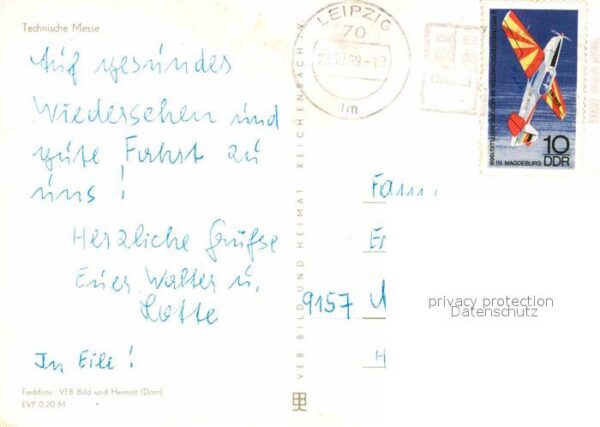 Technische Messe
Auf gesundes
Wiedersehen und
gute Fahrt zu
uns!
Herzliche Grüße
Euer Walter u.
Lotte
In Eile!
Farbfoto: VEB Bild und Heimat (Darr)
EVP 0.20 M
VEB BILD UND HEIMAT REICHENBACH I. V.
LEIPZIG
70
1m
10
DDR
IN MAGDEBURG
Fam.
9157
privacy protection
Datenschutz